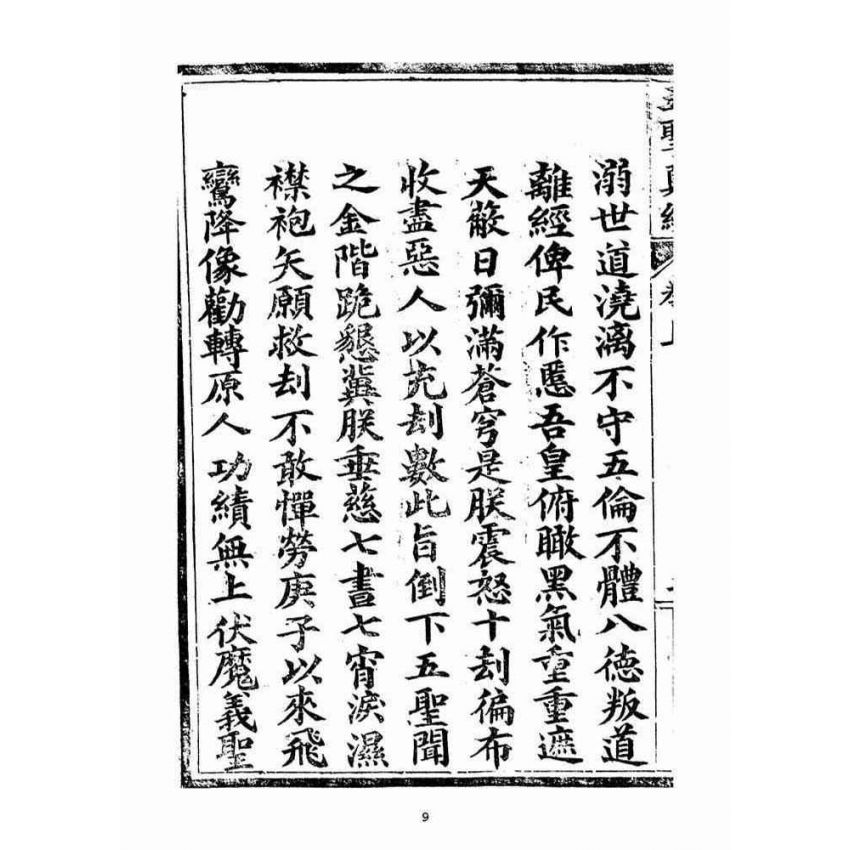 聖真經
卷上
溺世道澆漓不守五倫不體八德叛道
離經俾民作慝吾皇俯瞰黑氣重重遮
天蔽日彌滿蒼穹是朕震怒十刦徧布
收盡惡人以充刦數此旨倒下五聖聞
之金階跪懇冀朕垂慈七晝七宵淚濕
襟袍矢願救刦不敢憚勞庚子以來飛
鸞降像勸轉原人功績無上伏魔義聖
9